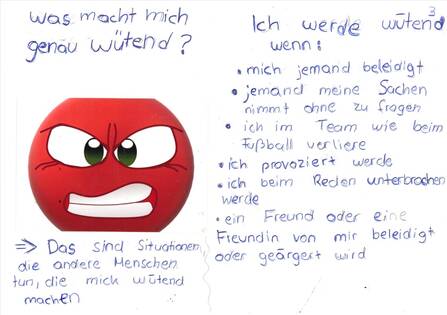 was macht mich
genau wütend?
⇒ Das sind Situationen,
die andere Menschen
tun, die mich wütend
machen
3
Ich werde wütend
wenn:
• mich jemand beleidigt
• jemand meine Sachen
nimmt ohne zu fragen
• ich im Team wie beim
Fußball verliere
• ich provoziert werde
• ich beim Reden unterbrochen
werde
• ein Freund oder eine
Freundin von mir beleidigt
oder geärgert wird